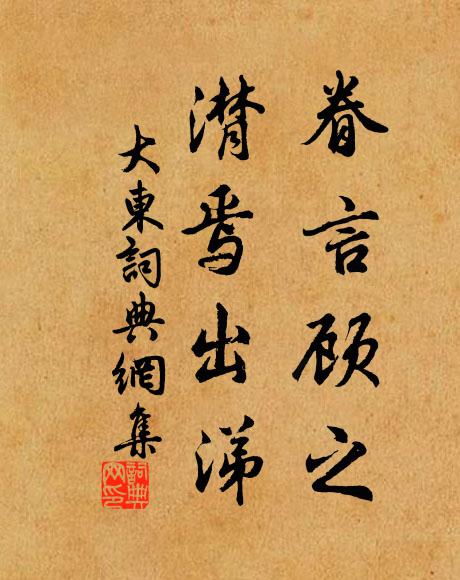 眷言顾之
潸焉出涕
大東詞典網集
詞典网印